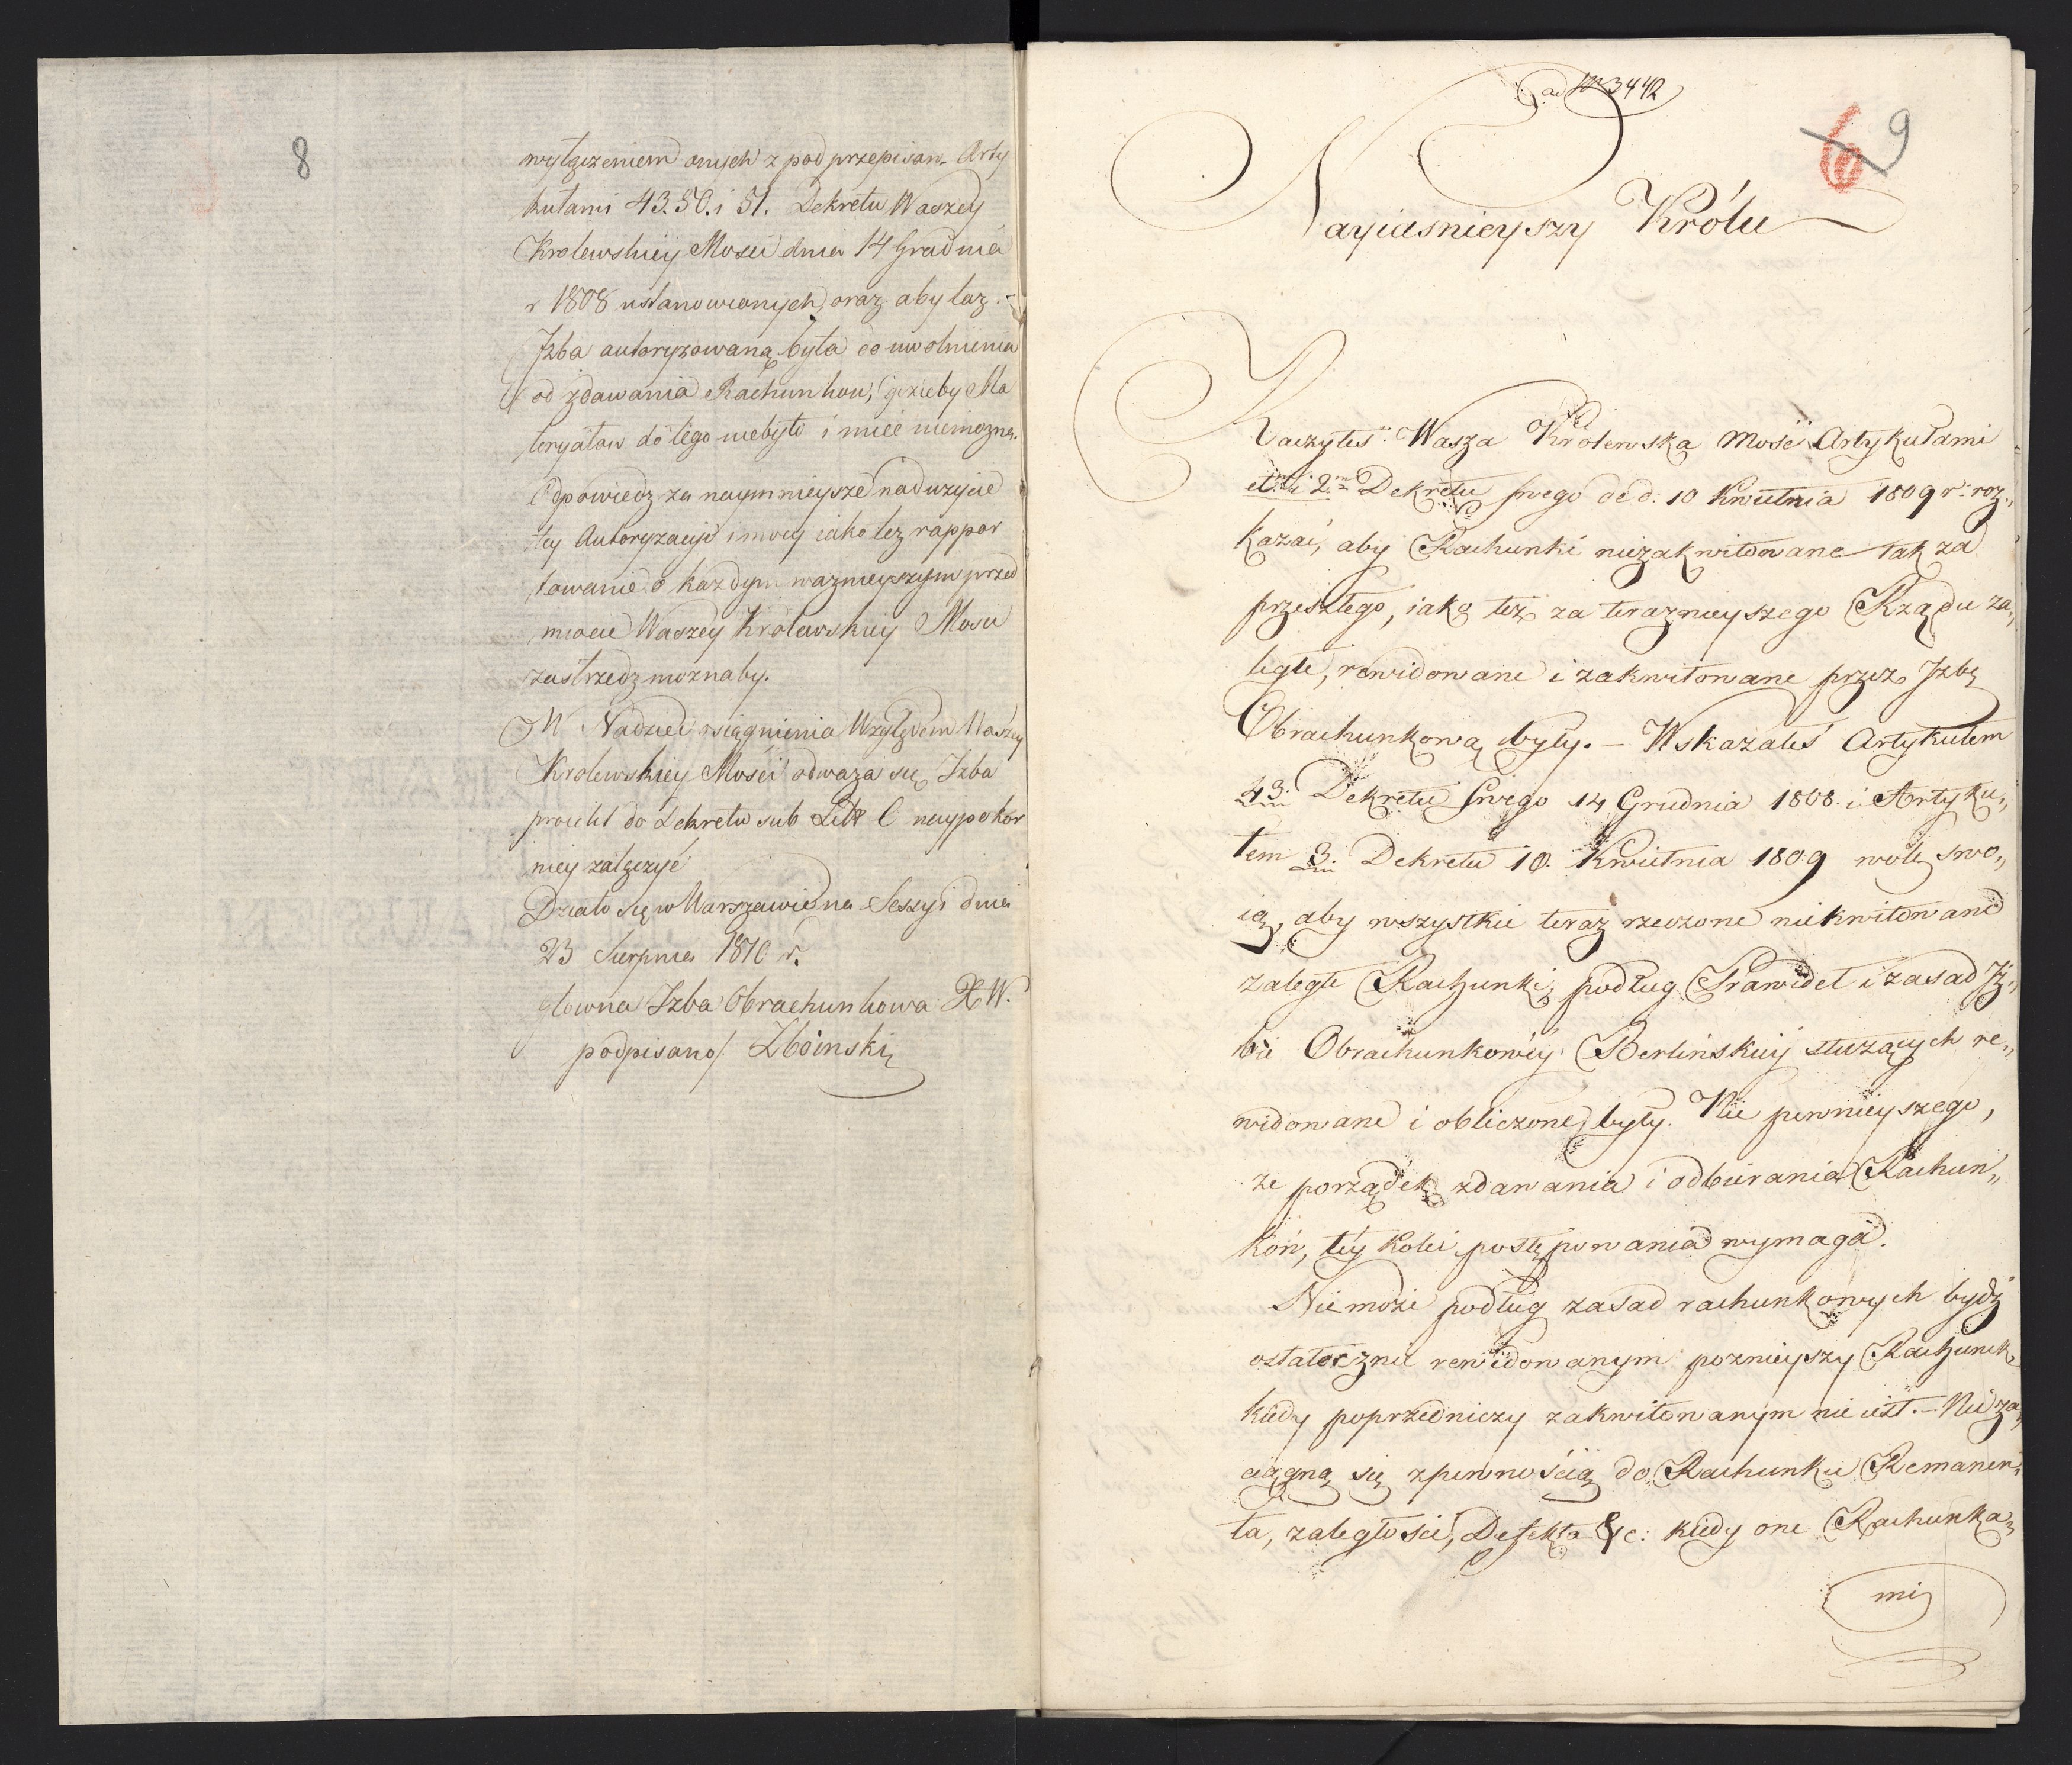 8
wyłączeniem onych z pod przepisow. Arty
kułami 43. 50. i 51. Dekretu Waszey
Krolewskiey Mosci dnia 14 Grudnia
r 1808 ustanowionych, oraz aby taz
Izba autoryzowaną była do uwolnienia
od zdawania Rachunkow, gdzieby Ma
teryałow do tego niebyło i mieć niemożna.
Odpowiedz za naymnieysze naduzycie
tey Autoryzacyi i mocy iako tez rappor
towanie o każdym waznieyszym przed
miocie Waszey Krolewskiey Mosci
zastrzedz moznaby.
W Nadziei osiągnienia Względow Waszey
Krolewskiey Mości odwaza się Izba
proiekt do Dekretu sub Litt C naypokor
niey załączyć
Działo się w Warszawie na Sessyi dnia
23 Sierpnia 1810 r.
Głowna Izba Obrachunkowa X W.
podpisano/ Zboinski
ad Nro 3442
6 9
Nayiasnieyszy Królu
Raczyłeś Wasza Królewska Mość Artykułami
1. i 2m Dekretu swego de d. 10 Kwietnia 1809 r. roz„
kazać, aby Rachunki niezakwitowane tak za
przeszłego, iako też za teraznieyszego Rządu za„
ległe, rewidowane i zakwitowane przez Izbę
Obrachunkową były. – Wskazałeś Artykułem
43. Dekretu swego 14 Grudnia 1808. i Artyku„
łem 3. Dekretu 10. Kwietnia 1809 wolę swo„
ię, aby wszystkie teraz rzeczone niekwitowane
zaległe Rachunki, podług Prawideł i zasad Iz„
bie Obrachunkowéy Berlińskiéy służących re„
widowane i obliczone były. Nic pewnieyszego,
że porządek zdawania i odbierania Rachun„
ków, téy kolei postępowania wymaga.
Nie może podług zasad rachunkowych bydź
ostatecznie rewidowanym poznieyszy Rachunek,
kiedy poprzedniczy zakwitowanym nie iest. – Nie za„
ciągną się z pewnością do Rachunku Remanen„
ta, zaległości, Defekta &c: kiedy one Rachunka„
mi